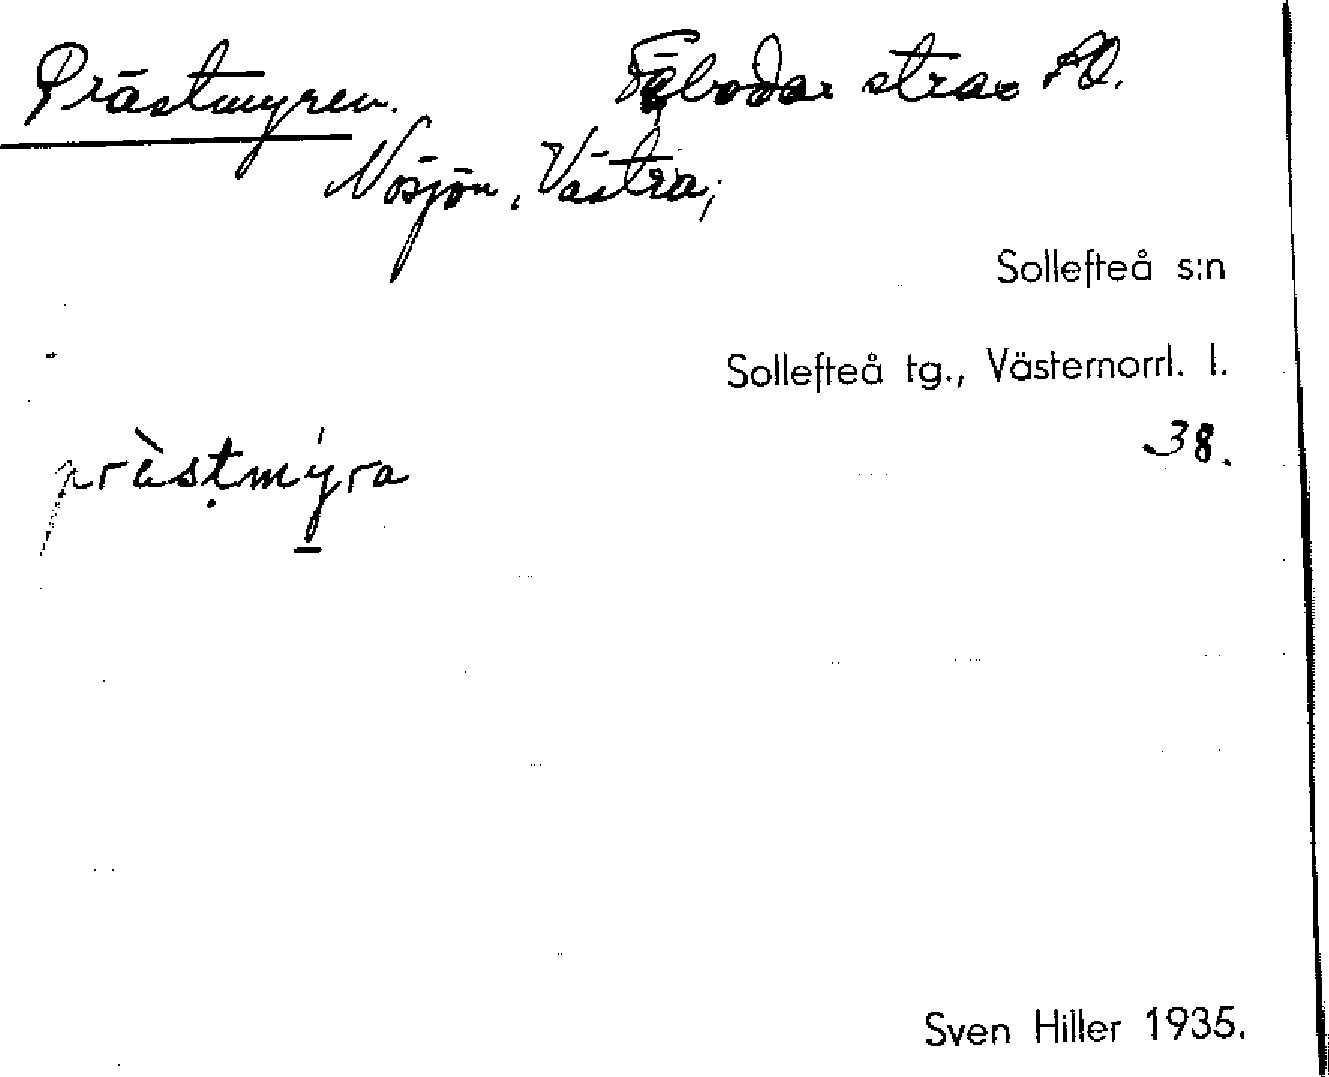 Prästmyren. Fäbodar strax SO.
Nösjön, Västra;
Sollefteå s:n
Sollefteå tg., Västernorrl. l.
38.
prὰstmýra
Sven Hiller 1935.